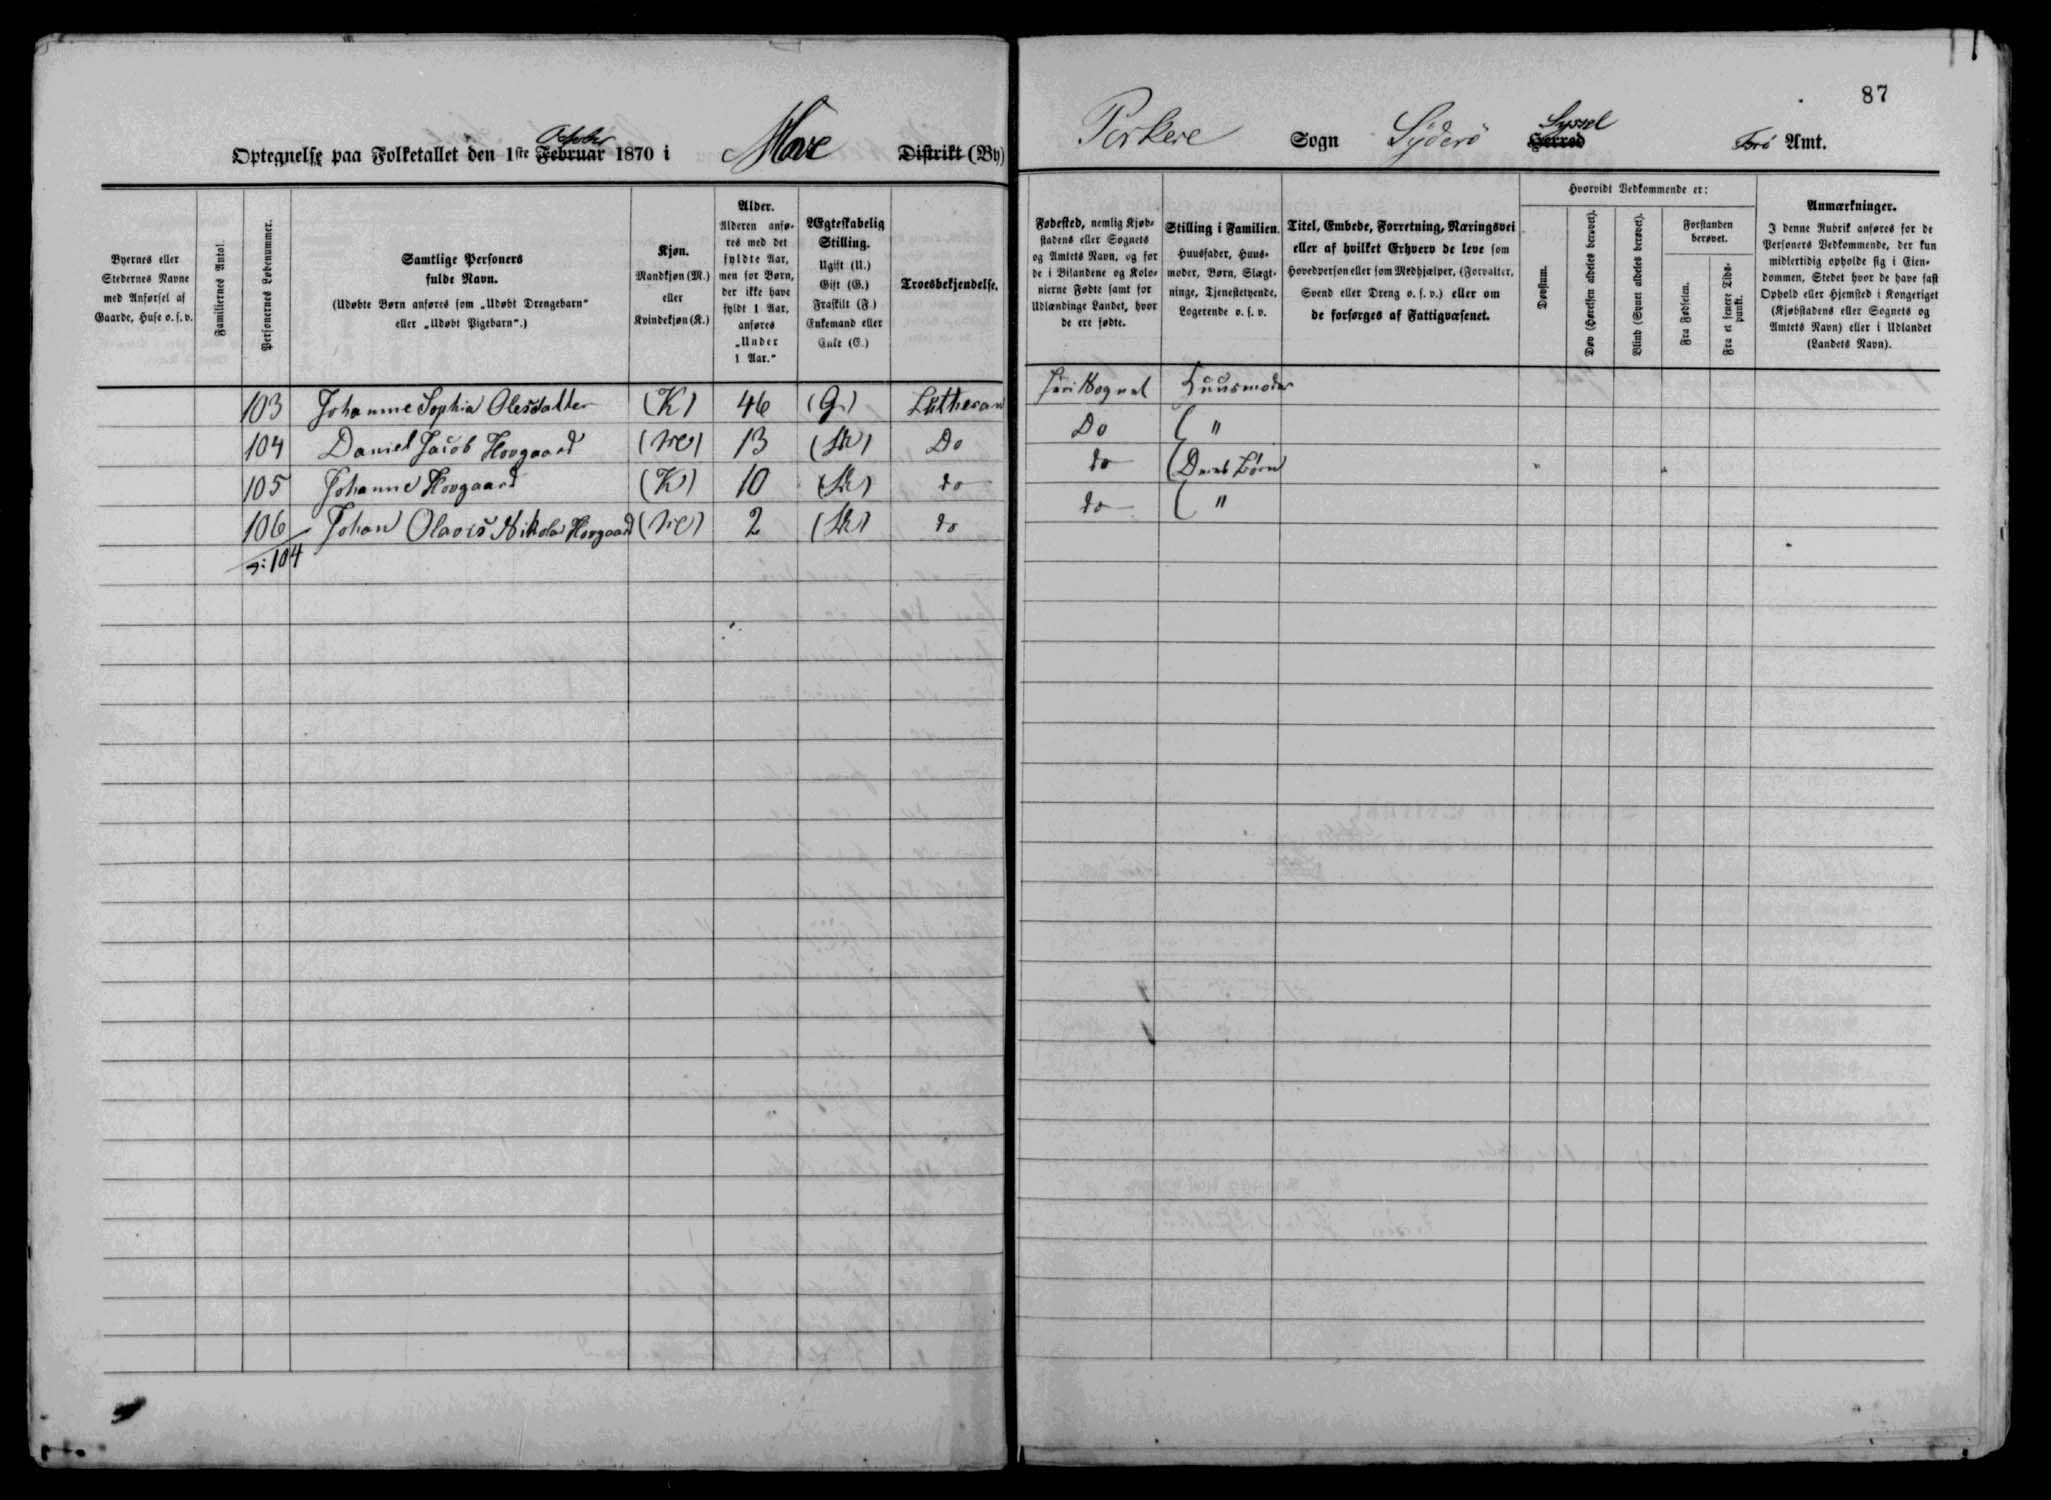 87
Octpber
Optegnelse paa Folketallet den 1ste Februar 1870 i Hove Distrikt (By)
Porkere Sogn Syderö Syssel Herred Færø Amt.
Byernes eller
Stedernes Navne
med Anførsel af
Gaarde, Huse o. s. v.
Familiernes Antal.
Personernes Løbenummer.
Samtlige Personers
fulde Navn.
(Udøbte Børn anføres som „Udøbt Drengebarn"
eller „Udøbt Pigebarn".)
Kjøn.
Mandkjøn (M.)
eller
Kvindekjøn (K.)
Alder.
Alderen anfø-
res med det
fyldte Aar,
men for Børn,
der ikke have
fyldt 1 Aar,
anføres
„Under
1 Aar."
Ægteskabelig
Stilling.
Ugift (U.)
Gift (G.)
Fraskilt (F.)
Enkemand eller
Enke (E.)
Troesbekjendelse.
Fødested, nemlig Kjøb-
stadens eller Sognets
og Amtets Navn, og for
de i Bilandene og Kolo-
nierne Fødte samt for
Udlændinge Landet, hvor
de ere fødte.
Stilling i Familien.
Huusfader, Huus-
moder, Børn, Slægt-
ninge, Tjenestetyende,
Logerende o. s. v.
Titel, Embede, Forretning, Næringsvei
eller af hvilket Erhverv de leve som
Hovedperson eller som Medhjælper, (Forvalter,
Svend eller Dreng o. s. v.) eller om
de forsørges af Fattigvæsenet.
Hvorvidt Vedkommende er:
Døvstum.
Døv (Hørelsen aldeles berøvet).
Blind (Synet aldeles berøvet).
Forstanden
berøvet.
Fra Fødselen.
Fra et senere Tids-
punkt.
Anmærkninger.
I denne Rubrik anføres for de
Personers Vedkommende, der kun
midlertidig opholde sig i Eien-
dommen, Stedet hvor de have fast
Ophold eller Hjemsted i Kongeriget
(Kjøbstadens eller Sognets og
Amtets Navn) eller i Udlandet
(Landets Navn).
103 Johanne Sophia Olesdatter (K) 46 (G) Lutheran Her i Sognet Huusmoder
104 Daniel Jacob Hovgaard (M) 13 (U) Do Do ( "
105 Johanne Hovgaard (K) 10 (U) do do (Deres Børn
106 Johan Olavis Nikola Hovgaard (M) 2 (U) do do ( "
ɔ: 104